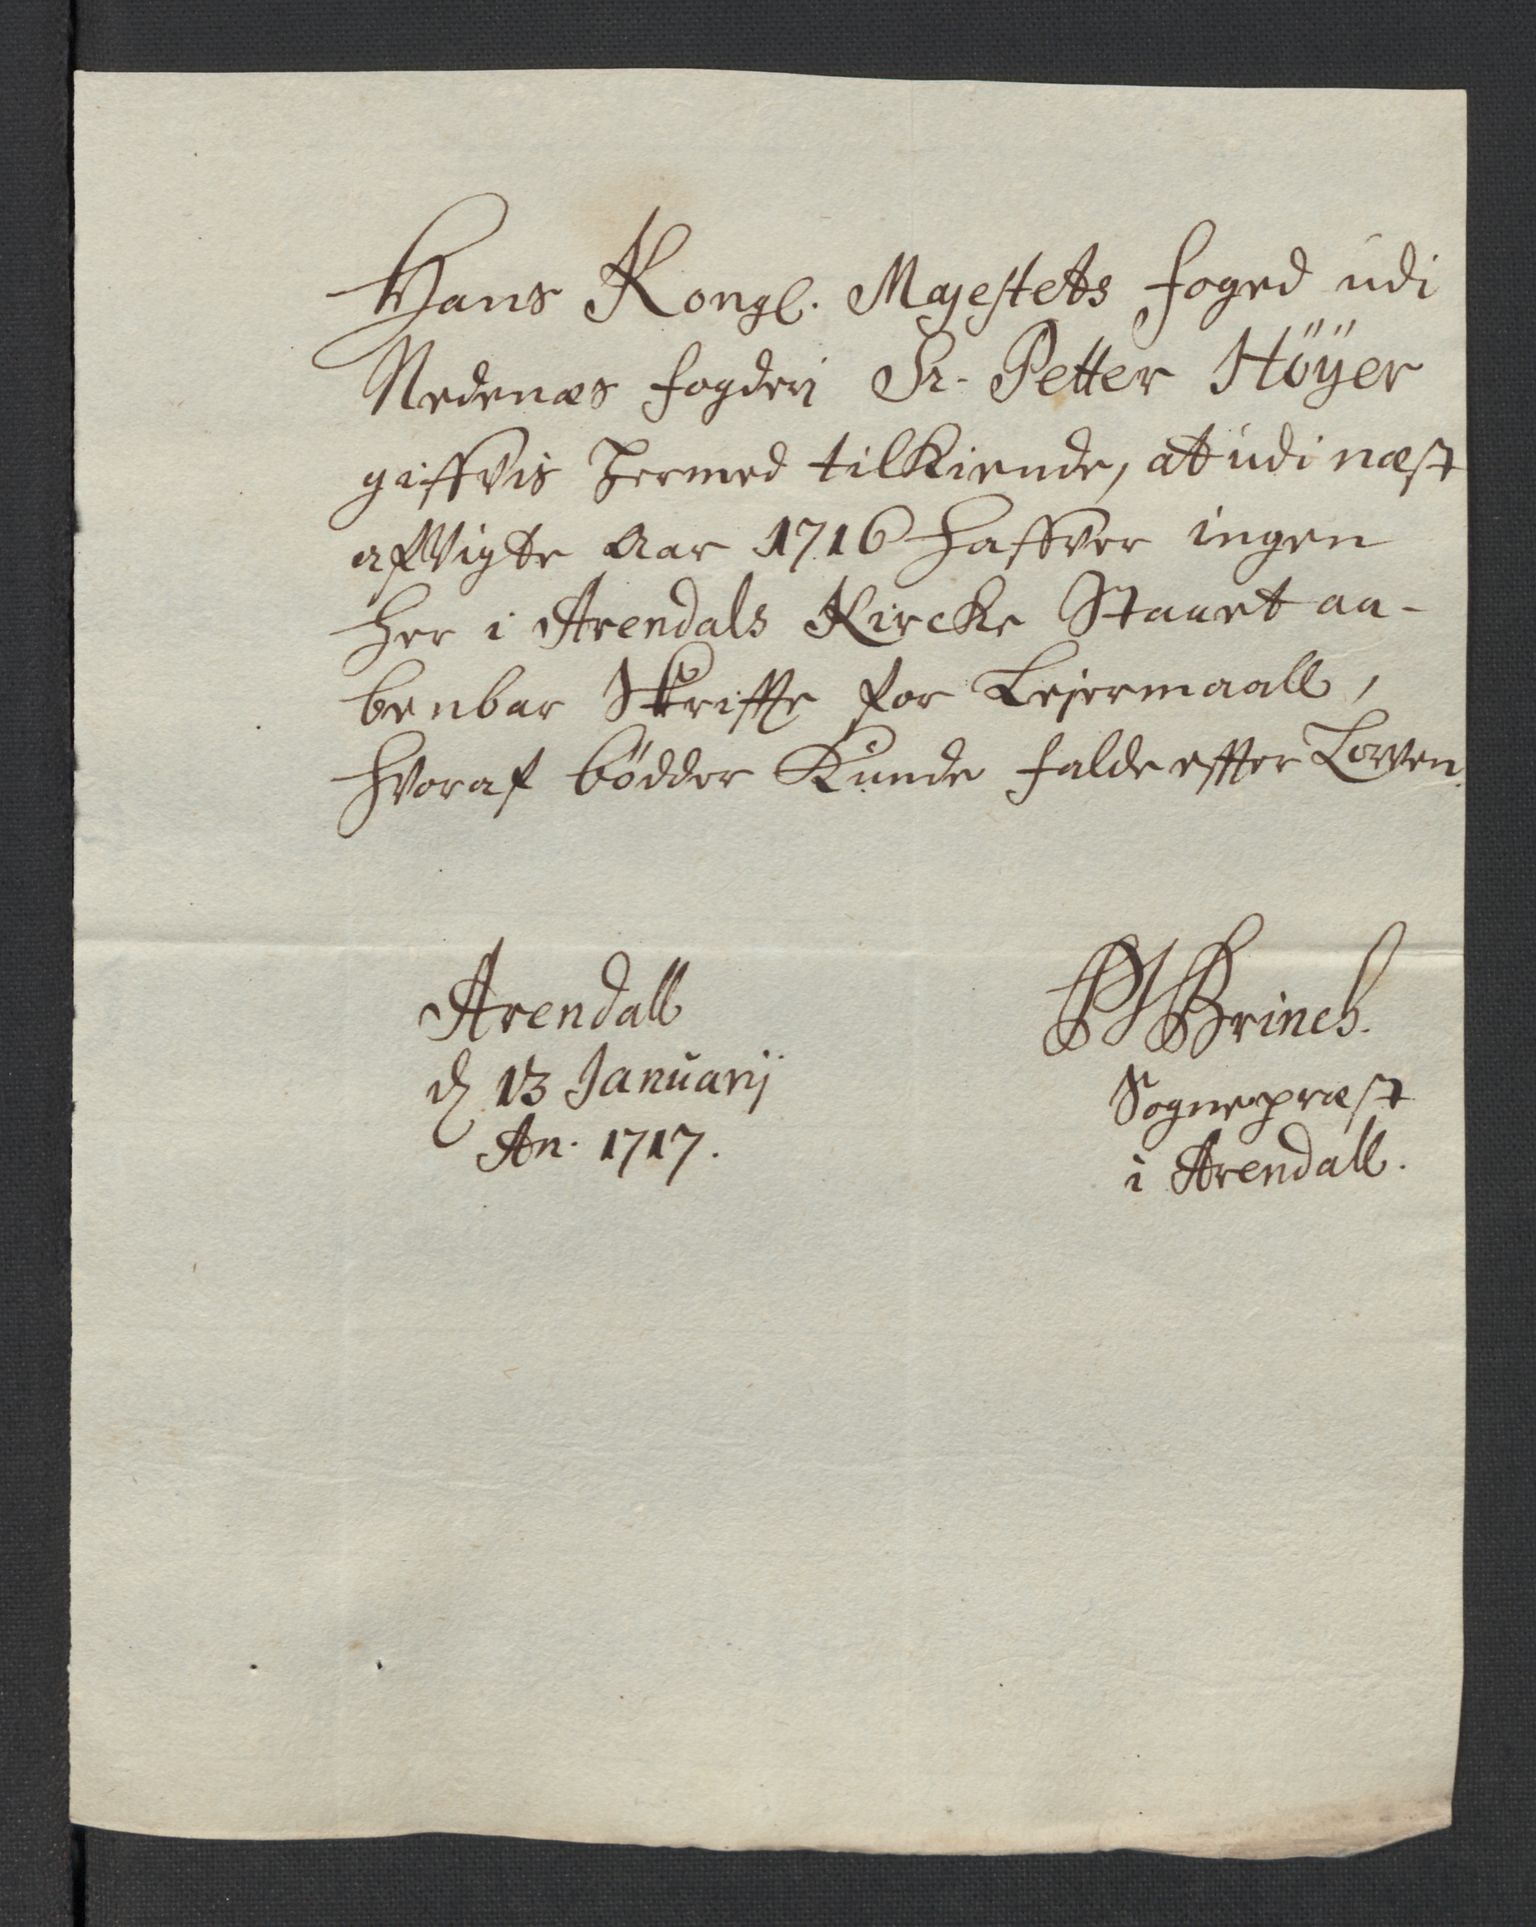 Hans Kongl. Majestets foged udi
Nedenæs fogderi Sr. Petter Höÿer
giffvis hermed tilkiende, at udi næst
afvigte Aar 1716 haffver ingen
her i Arendals Kircke Staaet aa-
benbar Skriffte for Lejermaall,
hvoraf bødder Kunde falde effter Lowen.
Arendall
d 13 Januarij
An. 1717.
Brinch.
Sognepræst
i Arendall.